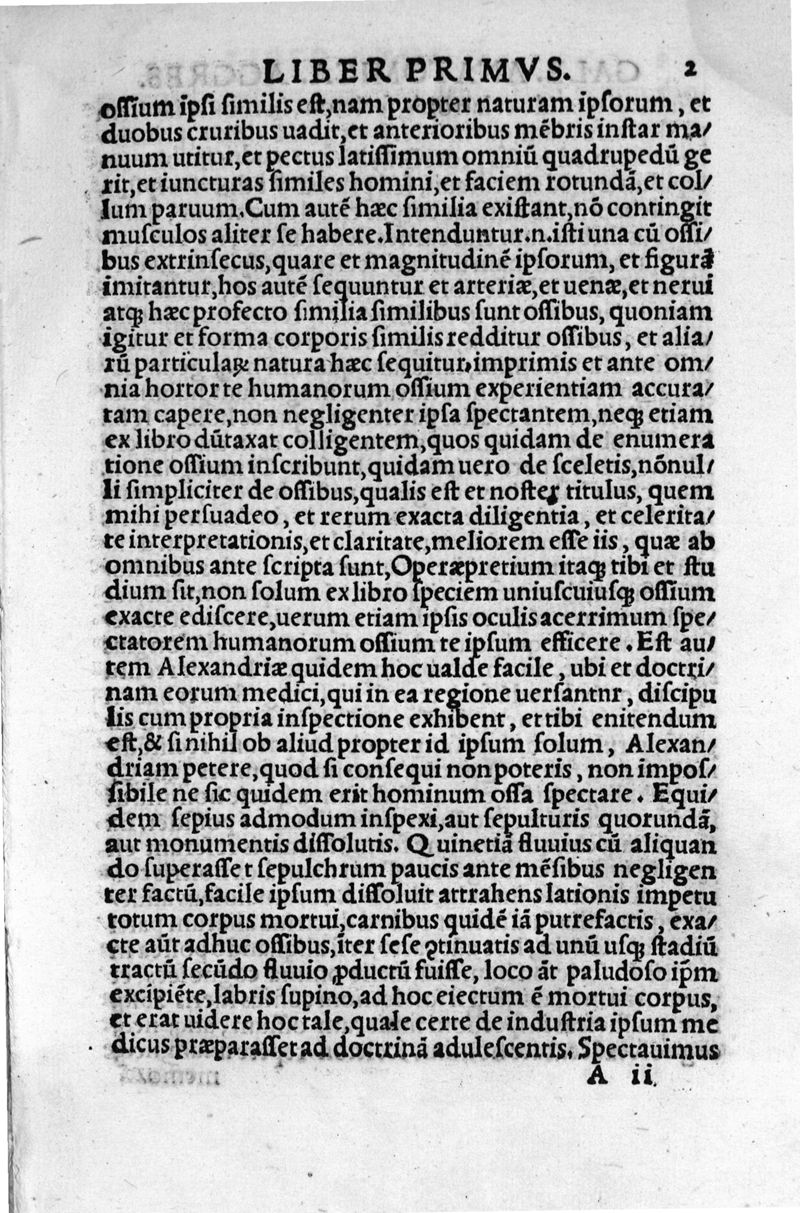 LIBER PRIMVS. 2
oſſium ipſi ſimilis eſt,nam propter naturam ipſorum , et
duobus cruribus uadit,et anterioribus mẽbris inſtar ma/
nuum utitur,et pectus latiſſimum omniũ quadrupedũ ge
rit,et iuncturas ſimiles homini,et faciem rotundã,et col/
lum paruum.Cum autẽ hæc ſimilia exiſtant,nõ contingit
muſculos aliter ſe habere.Intenduntur.n.iſti una cũ oſſi/
bus extrinſecus,quare et magnitudinẽ ipſorum, et figurã
imitantur,hos autẽ ſequuntur et arteriæ,et uenæ,et nerui
atqꝫ hæc profecto ſimilia ſimilibus ſunt oſſibus, quoniam
igitur et forma corporis ſimilis redditur oſſibus, et alia/
rũ particulaꝝ natura hæc ſequitur,imprimis et ante om/
nia hortor te humanorum oſſium experientiam accura/
tam capere,non negligenter ipſa ſpectantem,neqꝫ etiam
ex libro dũtaxat colligentem,quos quidam de enumera
tione oſſium inſcribunt,quidam uero de ſceletis,nõnul/
li ſimpliciter de oſſibus,qualis eſt et noſter titulus, quem
mihi perſuadeo , et rerum exacta diligentia , et celerita/
te interpretationis,et claritate,meliorem eſſe iis , quæ ab
omnibus ante ſcripta ſunt,Operæpretium itaqꝫ tibi et ſtu
dium ſit,non ſolum ex libro ſpeciem uniuſcuiuſqꝫ oſſium
exacte ediſcere,uerum etiam ipſis oculis acerrimum ſpe/
ctatorem humanorum oſſium te ipſum efficere . Eſt au/
tem Alexandriæ quidem hoc ualde facile , ubi et doctri/
nam eorum medici,qui in ea regione uerſantnr , diſcipu
lis cum propria inſpectione exhibent , et tibi enitendum
eſt,& ſi nihil ob aliud propter id ipſum ſolum , Alexan/
driam petere,quod ſi conſequi non poteris , non impoſ/
ſibile ne ſic quidem erit hominum oſſa ſpectare . Equi/
dem ſepius admodum inſpexi,aut ſepulturis quorundã,
aut monumentis diſſolutis. Quinetiã fluuius cũ aliquan
do ſuperaſſet ſepulchrum paucis ante mẽſibus negligen
ter factũ,facile ipſum diſſoluit attrahens lationis impetu
totum corpus mortui,carnibus quidẽ iã putrefactis , exa/
cte aũt adhuc oſſibus,iter ſeſe ꝯtinuatis ad unũ uſqꝫ ſtadiũ
tractũ ſecũdo fluuio ꝓductũ fuiſſe, loco ãt paludoſo ip̃m
excipiẽte,labris ſupino,ad hoc eiectum ẽ mortui corpus,
et erat uidere hoc tale,quale certe de induſtria ipſum me
dicus præparaſſet ad doctrinã aduleſcentis. Spectauimus
A ii.